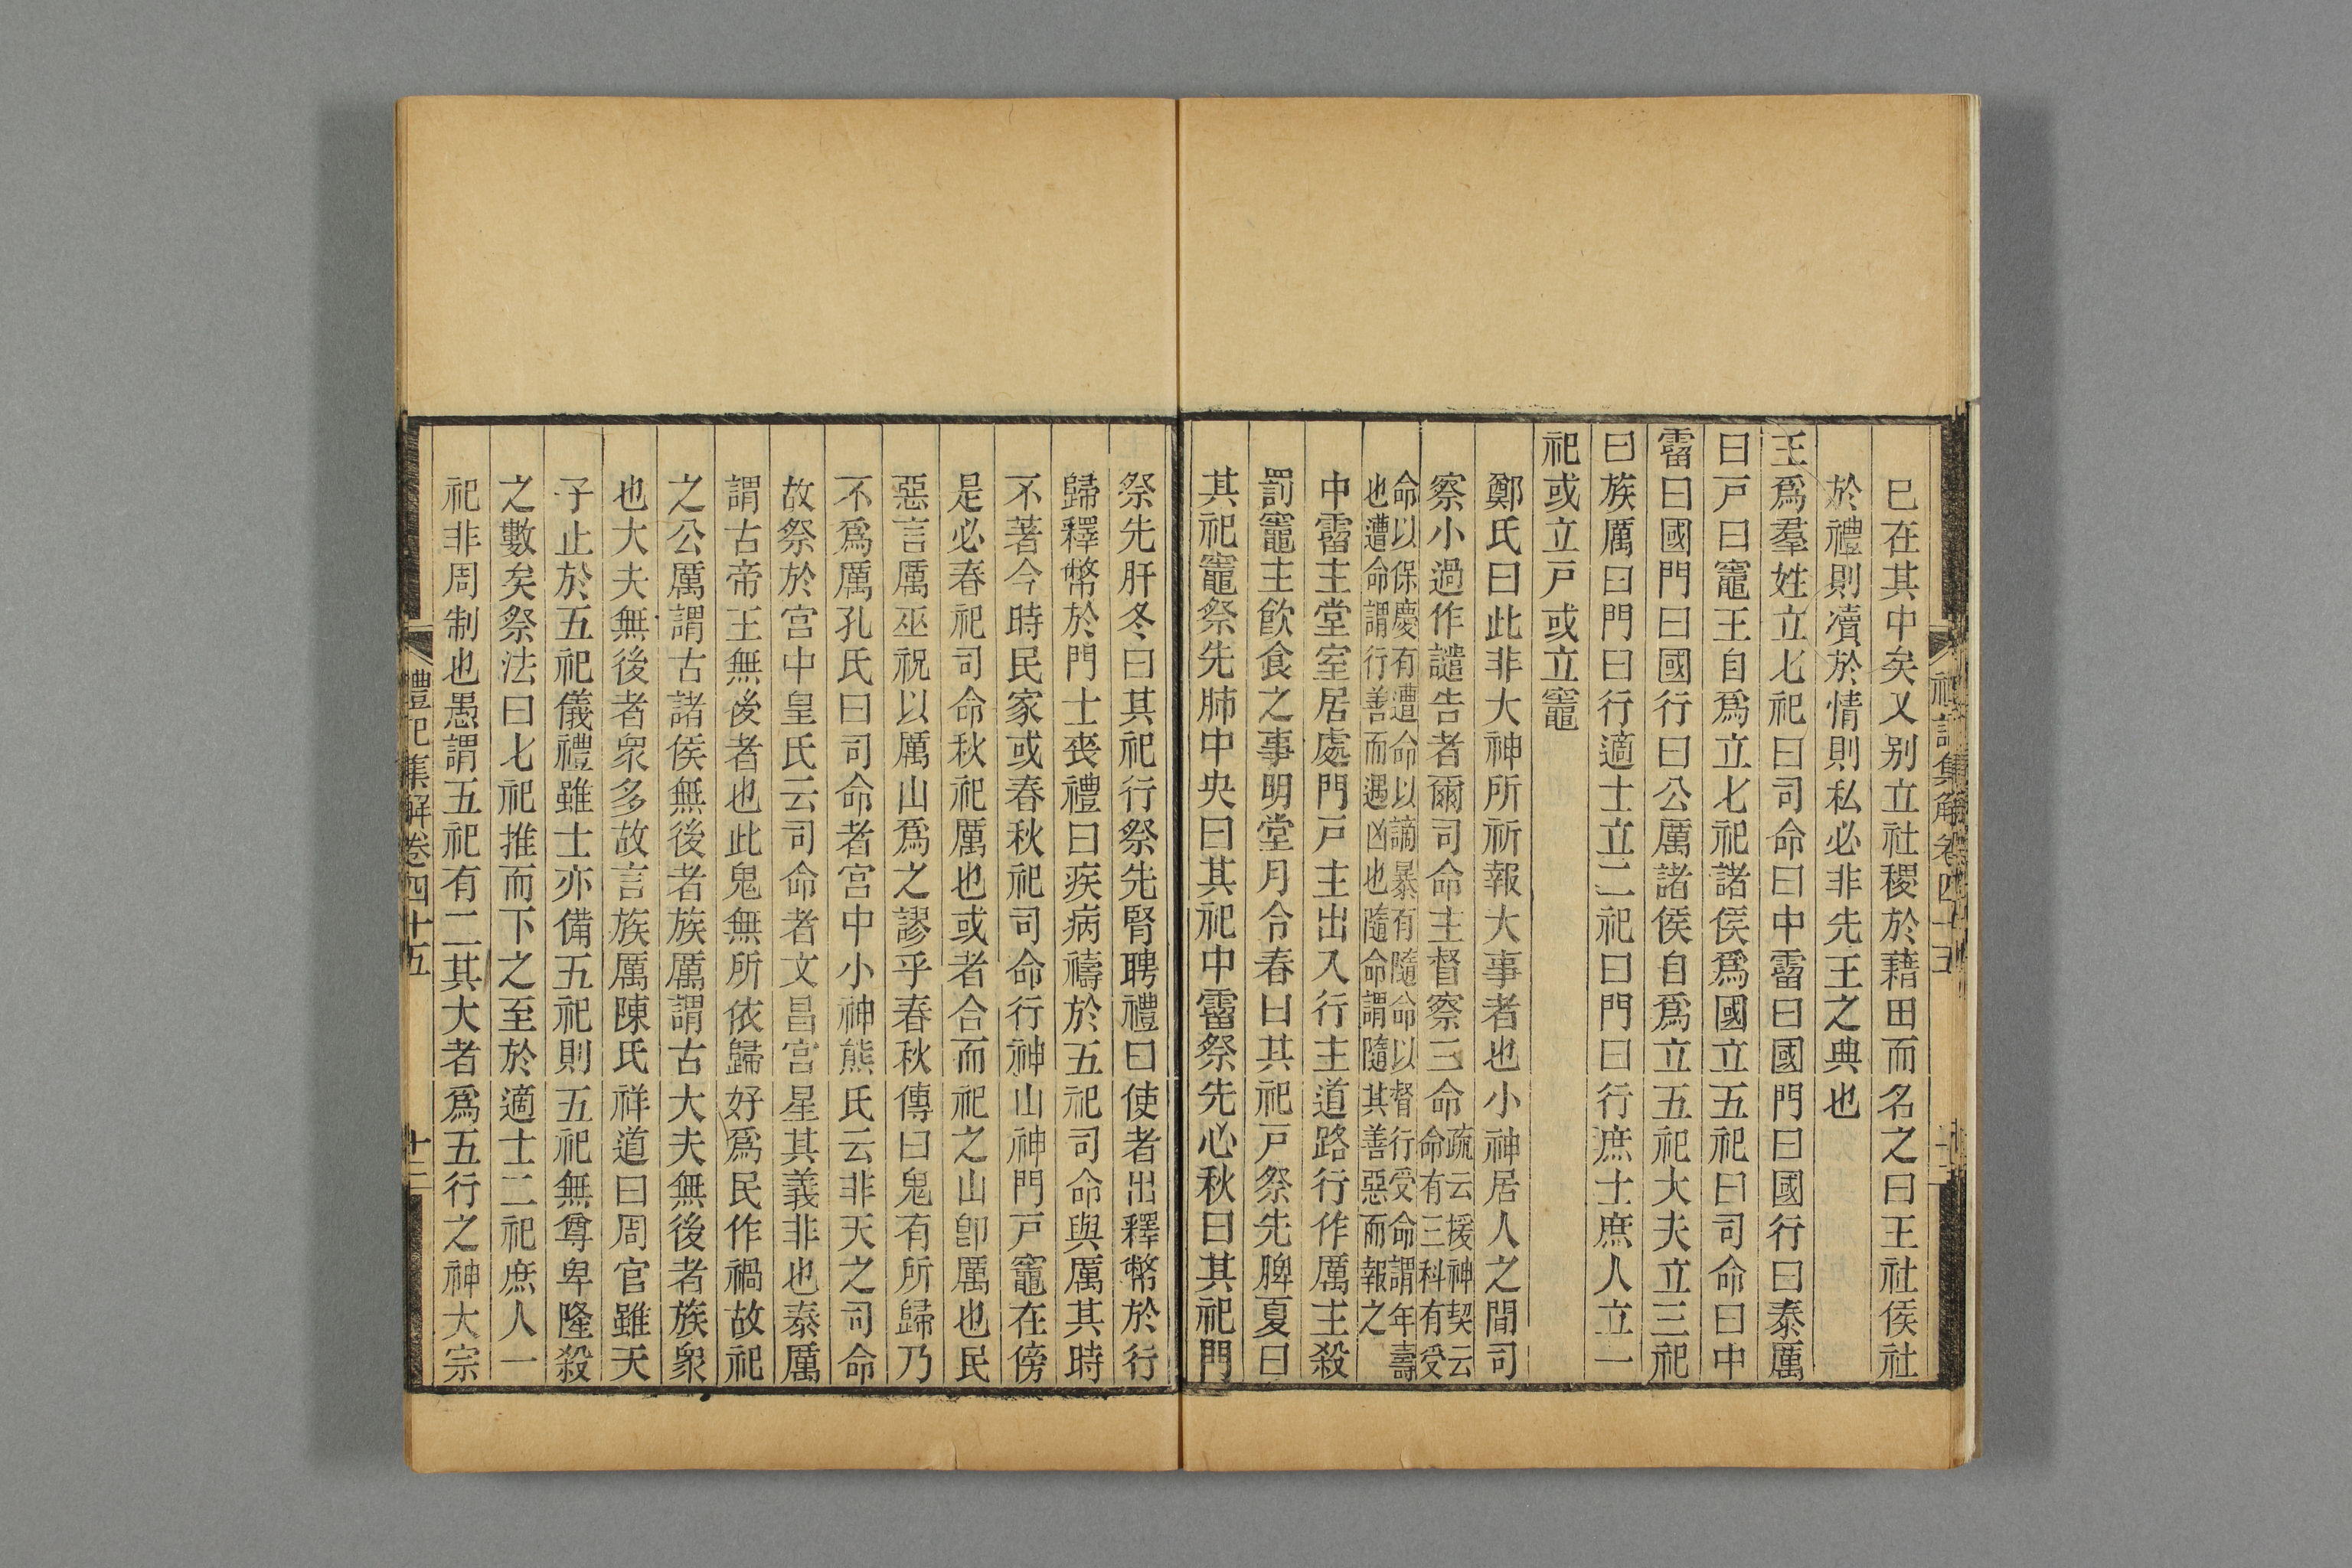 巳在其中矣又别立社稷於藉田而名之曰王社侯社
於禮則凟於情則私必非先王之典也
王爲羣姓立七祀曰司命曰中霤曰國門曰國行曰泰厲
曰戸曰竈王自爲立七祀諸侯爲國立五祀曰司命曰中
霤曰國門曰國行曰公厲諸侯自爲立五祀大夫立三祀
曰族厲曰門曰行適士立二祀曰門曰行庶士庶人立一
祀或立戸或立竈
鄭氏曰此非大神所祈報大事者也小神居人之間司
察小過作譴告者爾司命主督察三命疏云援神契云命有三科有受
命以保慶有遭命以謫暴有隨命以督行受命謂年壽也遭命謂行善而遇凶也隨命謂隨其善惡而報之
中霤主堂室居處門戸主出入行主道路行作厲主殺
罰竈主飲食之事明堂月令春曰其祀戸祭先脾夏曰
其祀竈祭先肺中央曰其祀中霤祭先心秋曰其祀門
祭先肝冬曰其祀行祭先腎聘禮曰使者出釋幣於行
歸釋幣於門士喪禮曰疾病禱於五祀司命與厲其時
不著今時民家或春秋祀司命行神山神門戸竈在傍
是必春祀司命秋祀厲也或者合而祀之山卽厲也民
惡言厲巫祝以厲山爲之謬乎春秋傳曰鬼有所歸乃
不爲厲孔氏曰司命者宮中小神熊氏云非天之司命
故祭於宮中皇氏云司命者文昌宮星其義非也泰厲
謂古帝王無後者也此鬼無所依歸好爲民作禍故祀
之公厲謂古諸侯無後者族厲謂古大夫無後者族衆
也大夫無後者衆多故言族厲陳氏祥道曰周官雖天
子止於五祀儀禮雖士亦備五祀則五祀無尊卑隆殺
之數矣祭法曰七祀推而下之至於適士二祀庶人一
祀非周制也愚謂五祀有二其大者爲五行之神大宗
禮記集解卷四十五
十二